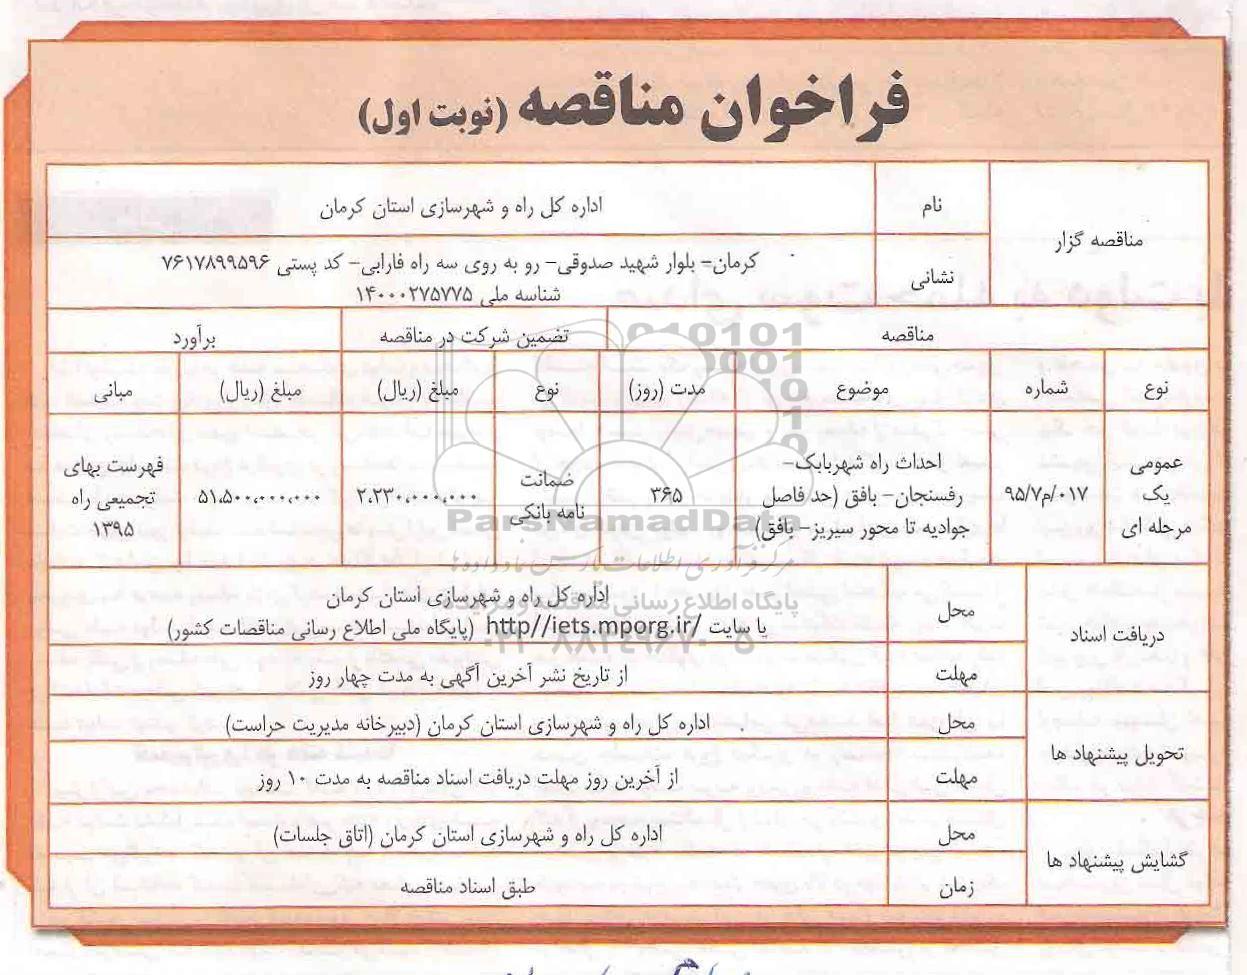 فراخوان مناقصه (نوبت اول)
مناقصه گزار
نام
اداره کل راه و شهرسازی استان کرمان
نشانی
کرمان- بلوار شهید صدوقی- رو به روی سه راه فارابی- کد پستی ۷۶۱۷۸۹۹۵۹۶
شناسه ملی ۱۴۰۰۰۲۷۵۷۷۵
مناقصه
تضمین شرکت در مناقصه
برآورد
نوع
شماره
موضوع
مدت (روز)
نوع
مبلغ (ریال)
مبلغ (ریال)
مبانی
عمومی
یک
مرحله ای
۹۵/۷/م/۰۱۷
احداث راه شهربابک-
رفسنجان- بافق (حد فاصل
جوادیه تا محور سیریز- بافق)
۳۶۵
ضمانت
نامه بانکی
۲،۲۳۰،۰۰۰،۰۰۰
۵۱،۵۰۰،۰۰۰،۰۰۰
فهرست بهای
تجمیعی راه
۱۳۹۵
دریافت اسناد
محل
اداره کل راه و شهرسازی استان کرمان
یا سایت http//iets.mporg.ir/ (پایگاه ملی اطلاع رسانی مناقصات کشور)
مهلت
از تاریخ نشر آخرین آگهی به مدت چهار روز
تحویل پیشنهاد ها
محل
اداره کل راه و شهرسازی استان کرمان (دبیرخانه مدیریت حراست)
مهلت
از آخرین روز مهلت دریافت اسناد مناقصه به مدت ۱۰ روز
گشایش پیشنهاد ها
محل
اداره کل راه و شهرسازی استان کرمان (اتاق جلسات)
زمان
طبق اسناد مناقصه
ParsNamadData
پایگاه اطلاع رسانی مناقصه و مزایده
۰۲۱-۸۸۳۴۹۶۷۰-۵